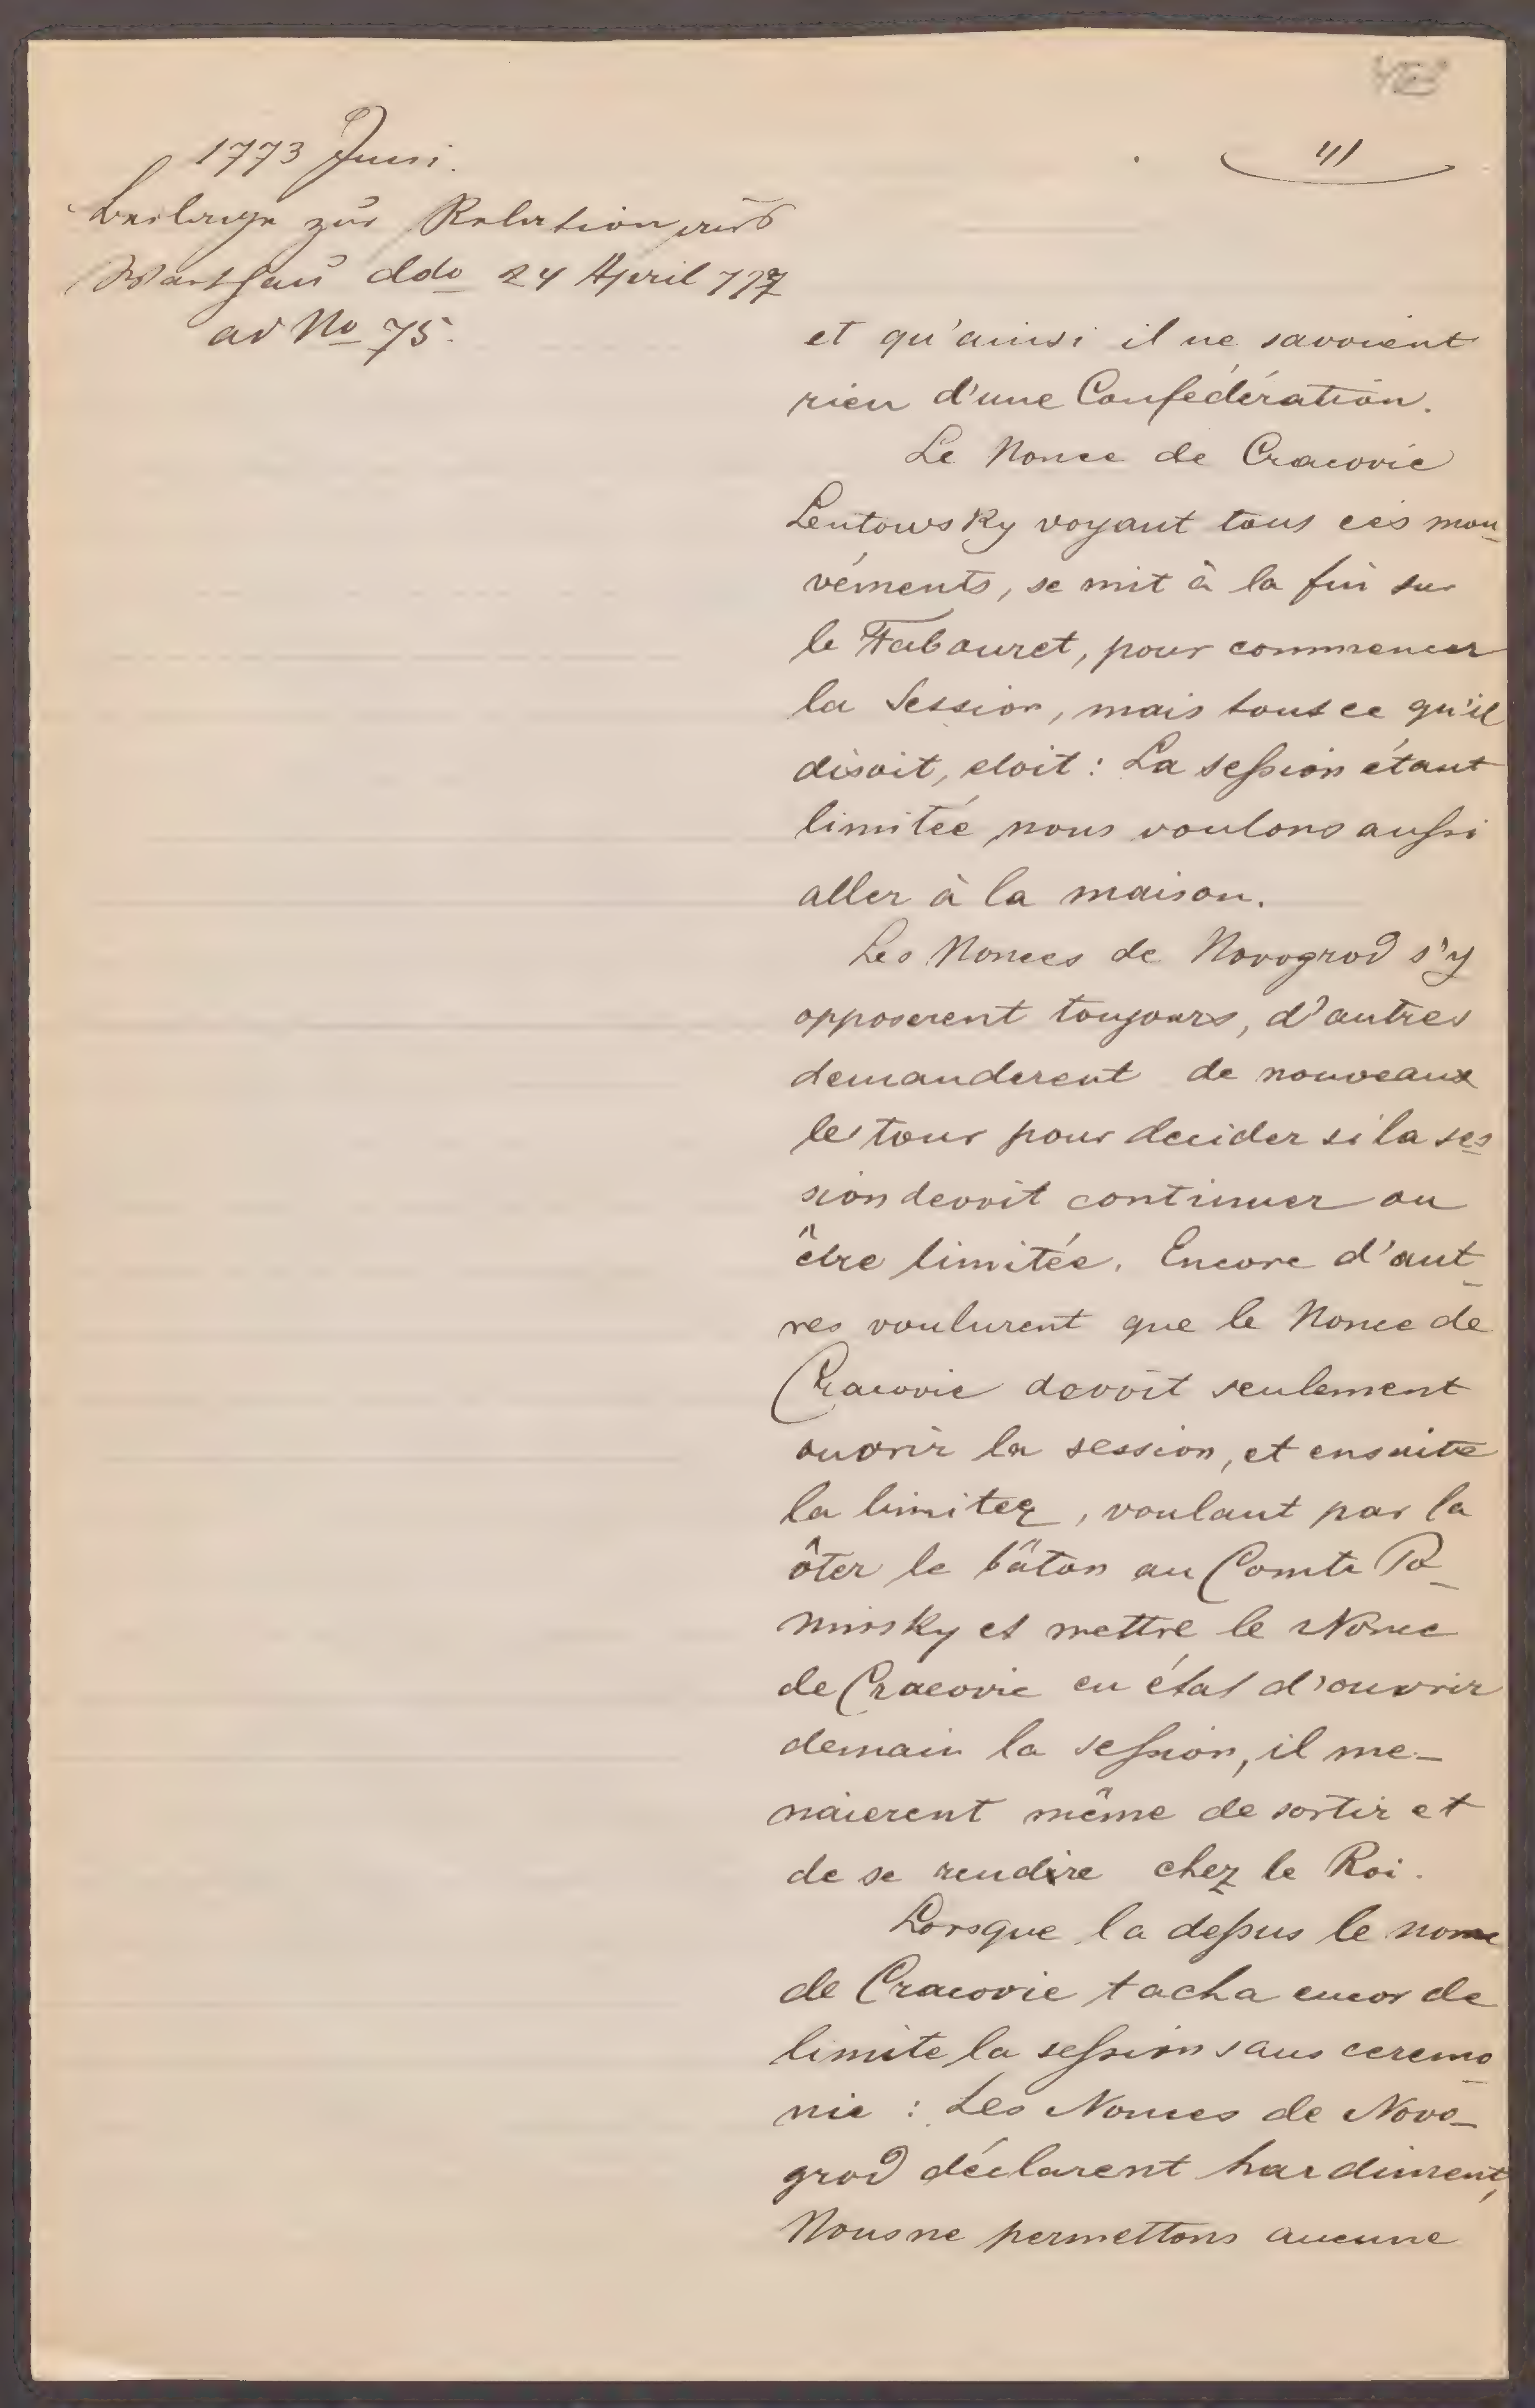 1773 Juni.
Beilage zur Relation aus
Warschau ddo 24 April 777
ad No 75.
"/
et qu'ainsi il ne savoient
rien d'une Confédération.
Le Nonce de Cracovie
Lentowsky voyant tous ces mou-
véments, se mit à la fin sur
le Tabouret, pour commencer
la Session, mais tout ce qu'il
disoit, etoit: La session étant
limitée nous voulons aussi
aller à la maison.
Les Nonces de Novogrod s'y
opposerent toujours, d'autres
demanderent de nouveaux
les tour pour decider si la ses-
sion devoit continuer ou
être limitée. Encore d'aut-
res voulurent que le Nonce de
Cracovie devoit seulement
ouvrir la session, et ensuite
la limiter, voulant par la
ôter le bâton au Comte Po-
ninsky et mettre le Nonce
de Cracovie en état d'ouvrir
demain la session, il me-
naierent même de sortir et
de se rendire chez le Roi.
Lorsque la dessus le nonce
de Cracovie tacha encor de
limite la session sans ceremo-
nie: Les Nonces de Novo-
grod déclarent hardiment,
Nous ne permettons aucune